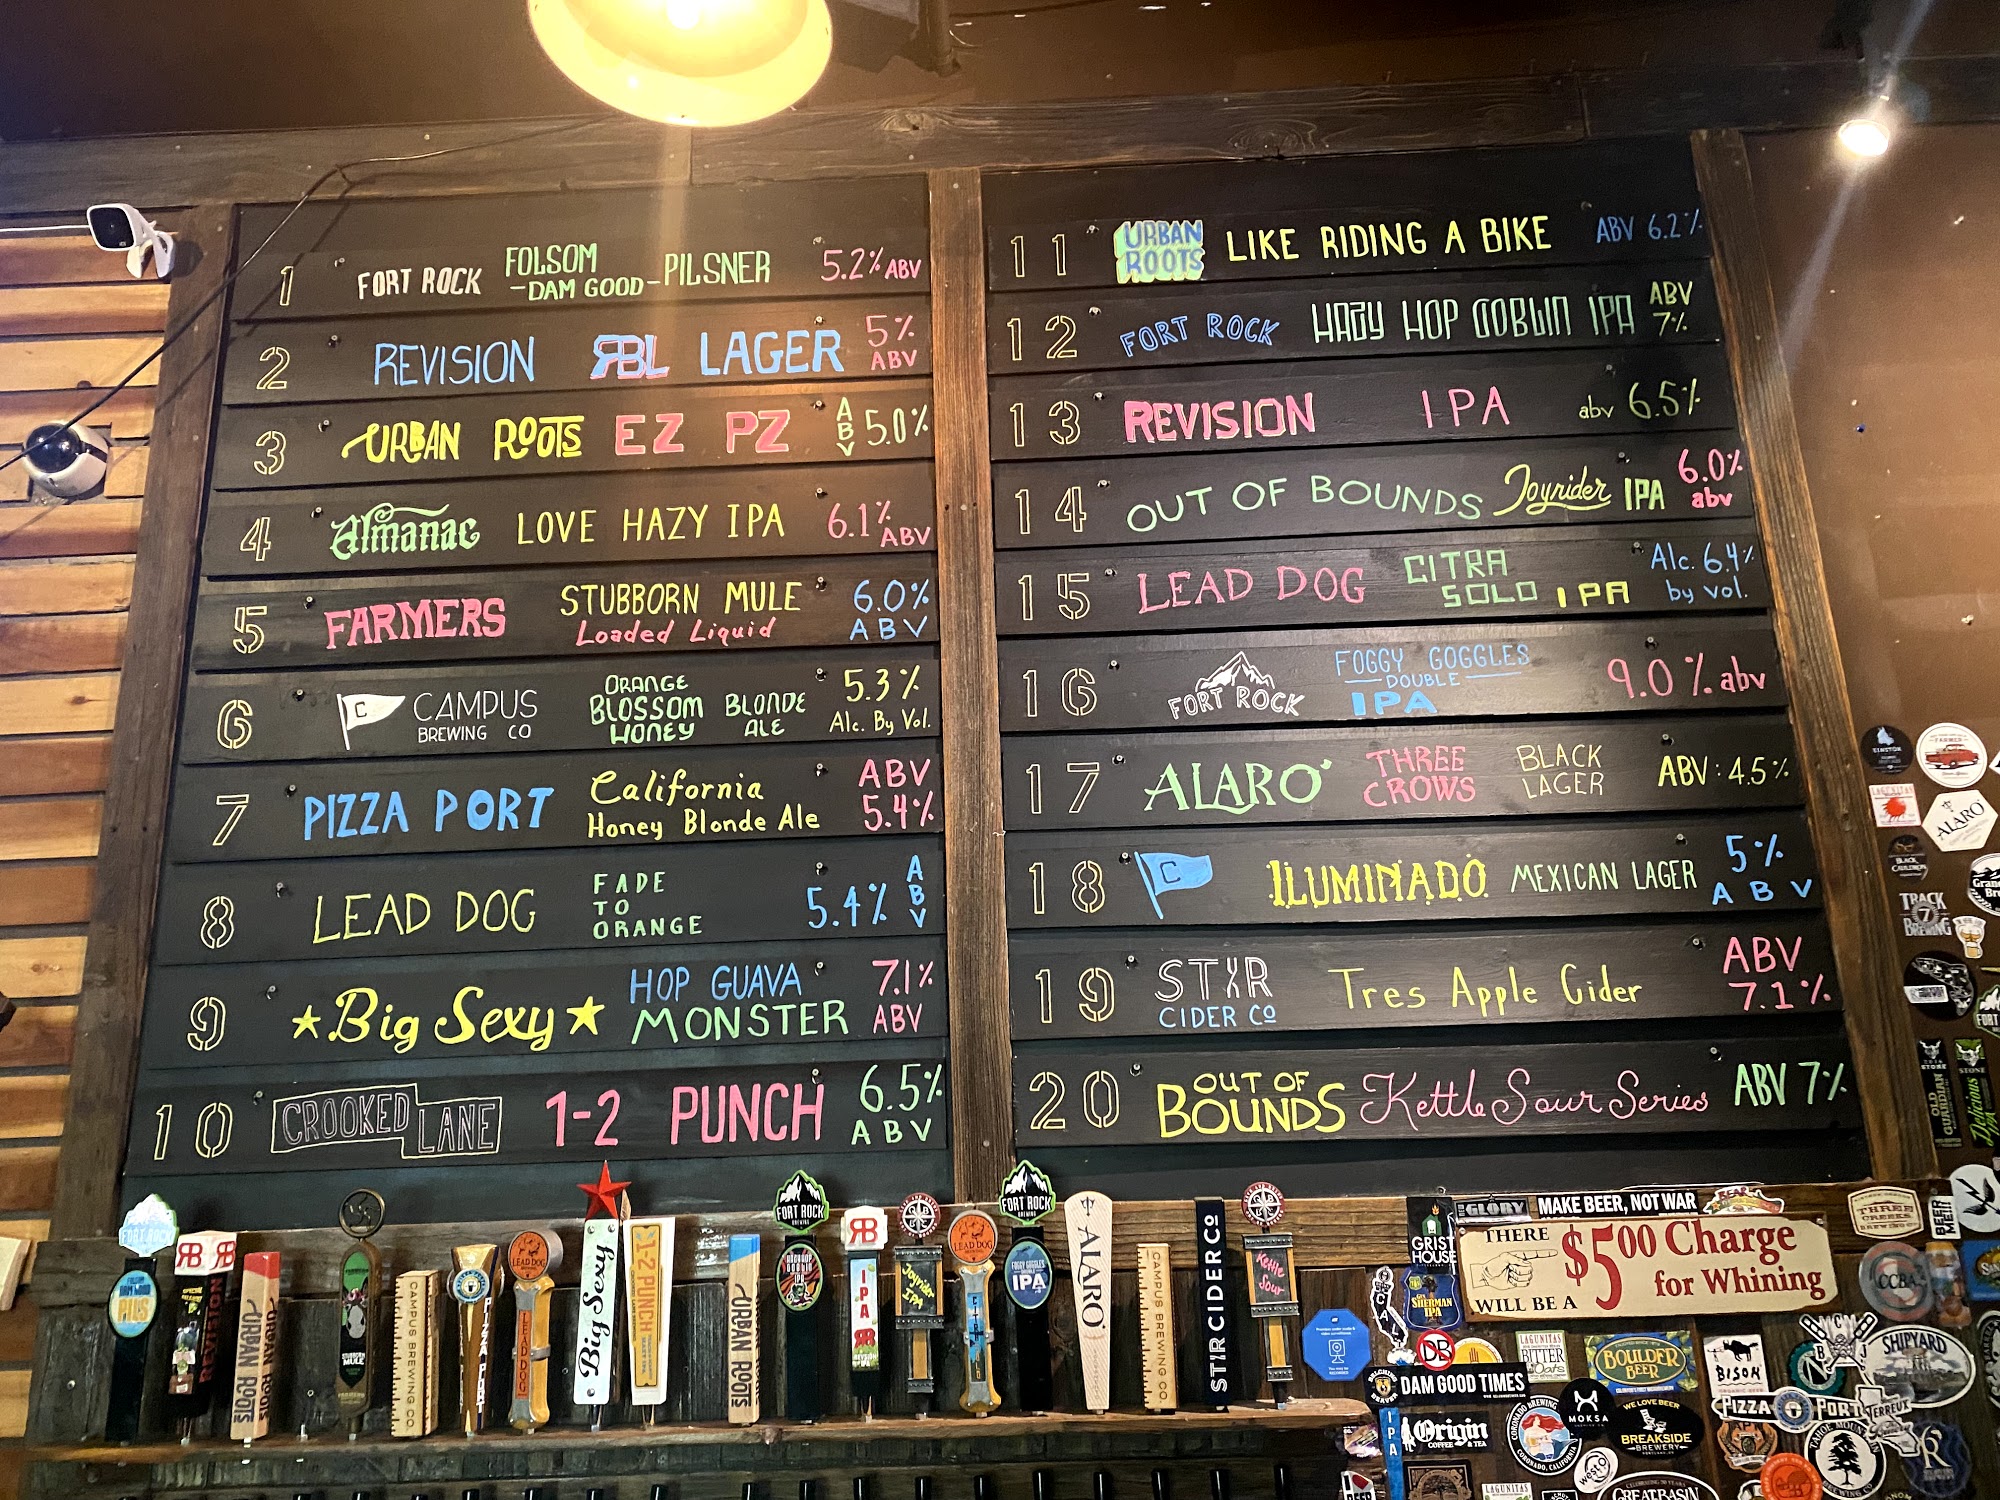 1 FORT ROCK FOLSOM -DAM GOOD- PILSNER 5.2% ABV
2 REVISION RBL LAGER 5% ABV
3 URBAN ROOTS EZ PZ ABV 5.0%
4 Almanac LOVE HAZY IPA 6.1% ABV
5 FARMERS STUBBORN MULE Loaded Liquid 6.0% ABV
6 C CAMPUS BREWING CO ORANGE BLOSSOM HONEY BLONDE ALE 5.3% Alc. By Vol.
7 PIZZA PORT California Honey Blonde Ale ABV 5.4%
8 LEAD DOG FADE TO ORANGE 5.4% ABV
9 Big Sexy HOP GUAVA MONSTER 7.1% ABV
10 CROOKED LANE 1-2 PUNCH 6.5% ABV
11 URBAN ROOTS LIKE RIDING A BIKE ABV 6.2%
12 FORT ROCK HAZY HOP GOBLIN IPA ABV 7%
13 REVISION IPA abv 6.5%
14 OUT OF BOUNDS Joyrider IPA 6.0% abv
15 LEAD DOG CITRA SOLO IPA Alc. 6.4% by vol.
16 FORT ROCK FOGGY GOGGLES DOUBLE IPA 9.0% abv
17 ALARO THREE CROWS BLACK LAGER ABV: 4.5%
18 C ILUMINADO MEXICAN LAGER 5% ABV
19 STIR CIDER CO Tres Apple Cider ABV 7.1%
20 OUT OF BOUNDS Kettle Sour Series ABV 7%
FORT ROCK
PILS
RB RB
REVISION
URBAN ROOTS
URBAN ROOTS
STUBBORN MULE
CAMPUS BREWING CO
PIZZA PORT
LEAD DOG
LEAD DOG
Big Sexy
1-2 PUNCH
URBAN ROOTS
FORT ROCK
BREWING
RB
IPA
RB
Joyrider IPA
LEAD DOG
FORT ROCK
BREWING
FOGGY GOGGLES
IPA
ALARO
CAMPUS BREWING CO
STIR CIDER CO
Kettle Sour
GLORY
MAKE BEER, NOT WAR
GRIST HOUSE
THERE WILL BE A $5.00 Charge for Whining
THREE CREEKS
BREWING CO
SHERMAN IPA
CCBA
LAGUNITAS
BITTER
BOULDER BEER
BISON
SHIPYARD
DAM GOOD TIMES
Origin
COFFEE & TEA
CORONADO BREWING
CORONADO, CALIFORNIA
MOKSA
WE LOVE BEER
BREAKSIDE
BREWERY
PIZZA PORT
TAHOE MOUNTAIN
westO
LAGUNITAS
GREAT BASIN
IPA
FARMER
LAGUNITAS
ALARO
BLACK CAULDRON
TRACK 7 BREWING
STONE
OLD GUARDIAN
STONE
Delicious IPA